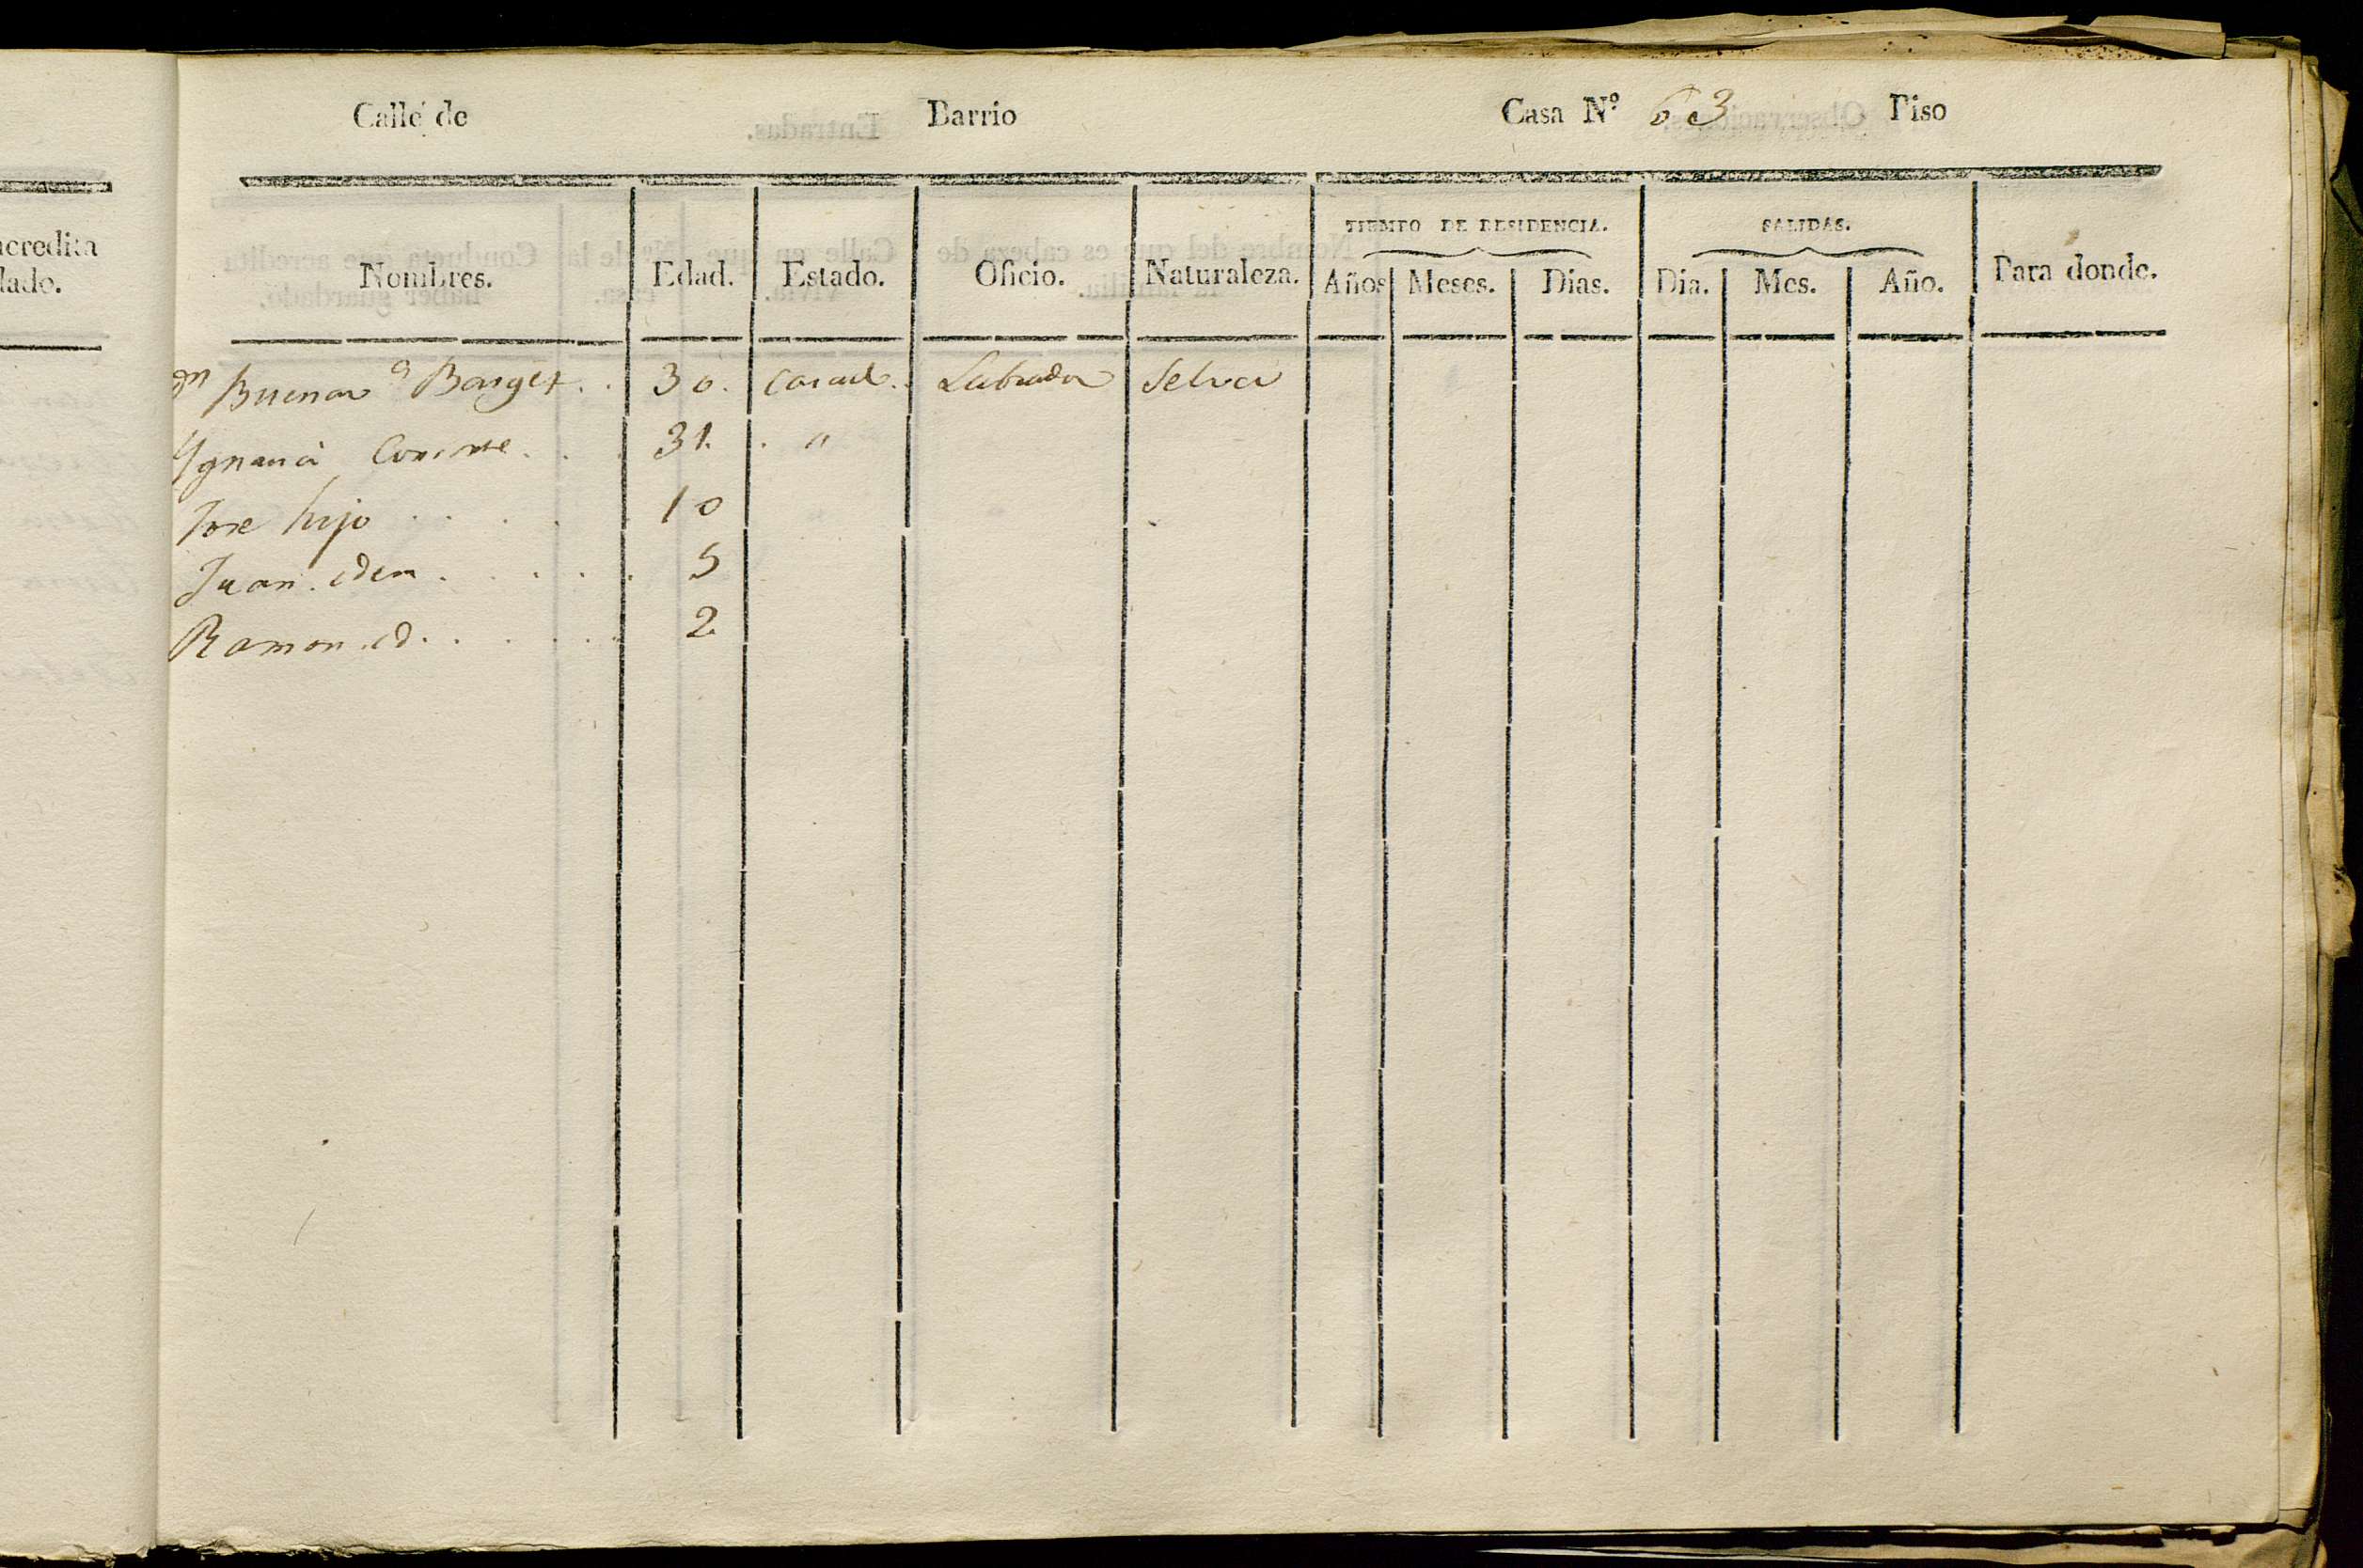 acredita
lado.
Calle de Barrio Casa Nº 63 Piso
TIEMPO DE RESIDENCIA. SALIDAS.
Nombres. Edad. Estado. Oficio. Naturaleza. Años Meses. Dias. Dia. Mes. Año. Para donde.
Buenavª 30. Casad. Labrador Selva
Ygnacia 31. "
Jose hijo 10
Juan. idem 5
Ramon. id. 2